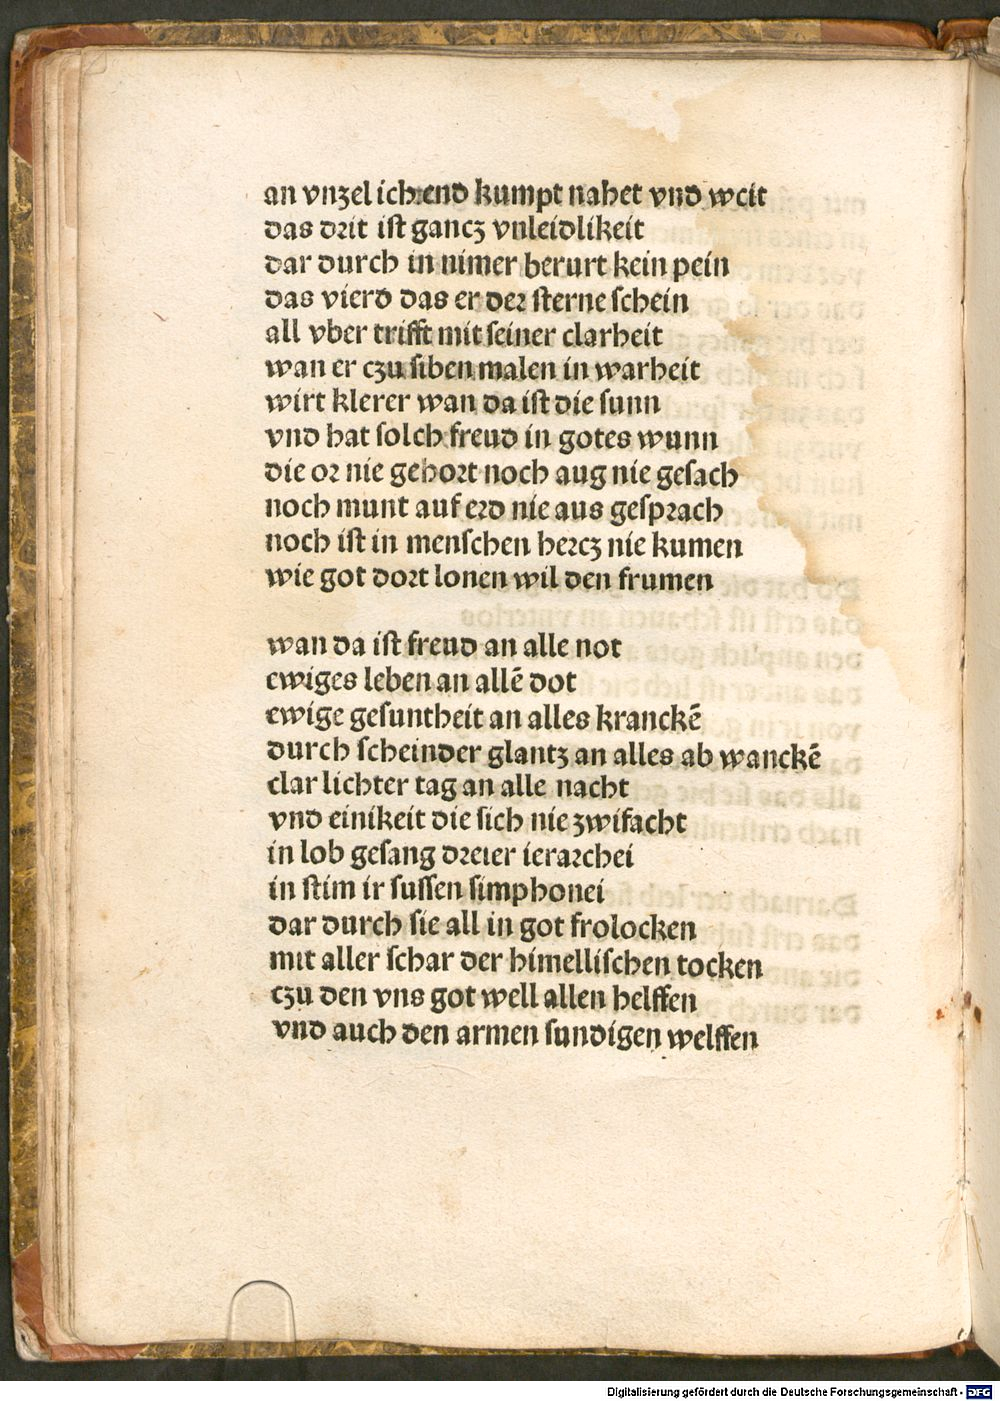 an vnzel ich end kumpt nahet vnd weit
das drit ist gancz vnleidlikeit
dar durch in nimer berurt kein pein
das vierd das er der sterne schein
all vber trifft mit seiner clarheit
wan er czu siben malen in warheit
wirt klerer wan da ist die sunn
vnd hat solch freud in gotes wunn
die or nie gehort noch aug nie gesach
noch munt auf erd nie aus gesprach
noch ist in menschen hercz nie kumen
wie got dort lonen wil den frumen
wan da ist freud an alle not
ewiges leben an allē dot
ewige gesuntheit an alles kranckē
durch scheinder glantz an alles ab wanckē
clar lichter tag an alle nacht
vnd einikeit die sich nie zwifacht
in lob gesang dreier ierarchei
in stim ir sussen simphonei
dar durch sie all in got frolocken
mit aller schar der himellischen tocken
czu den vns got well allen helffen
vnd auch den armen sundigen welffen
Digitalisierung gefördert durch die Deutsche Forschungsgemeinschaft - DFG